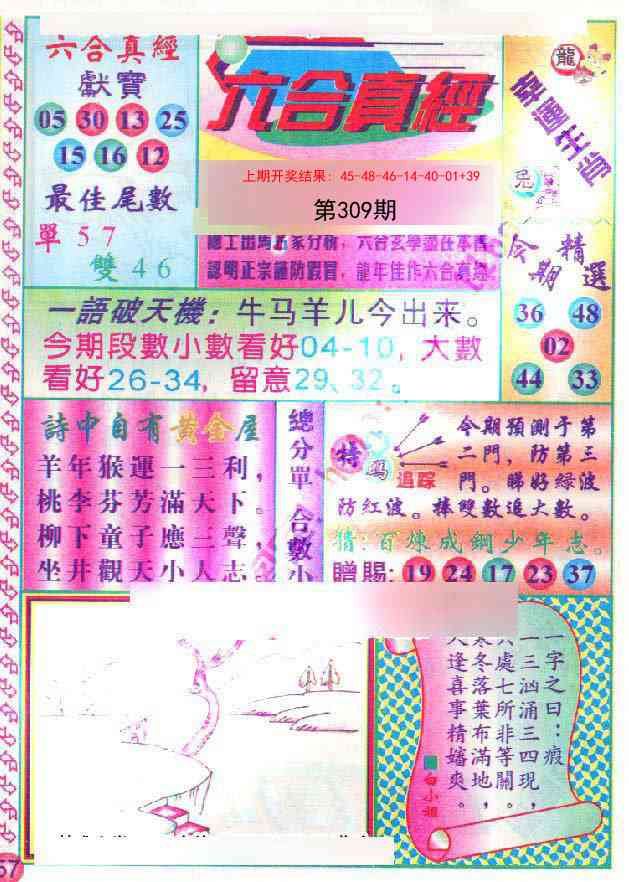 六合真經
獻寶
05 30 13 25
15 16 12
最佳尾數
單57
雙46
六合真經
上期开奖结果：45-48-46-14-40-01+39
第309期
認明正宗謹防假冒，龍年佳作六合真經
龍
幸運生肖
兔
今期精選
36 48
02
44 33
一語破天機：牛马羊儿今出来。
今期段數小數看好04-10，大數
看好26-34，留意29、32。
詩中自有黄金屋
羊年猴運一三利，
桃李芬芳滿天下。
柳下童子應三聲，
坐井觀天小人志。
總分單
合數小
特碼追踪
今期預測于第
二門，防第三
門。睇好緑波
防红波。棒雙數追大數。
猜：百煉成鋼少年志。
贈賜：19 24 17 23 37
一字之曰：瘕
一三汹涌三四現，
處七所非等關，
寒冬落葉布滿地，
人逢喜事精嬉爽。
白小姐
67